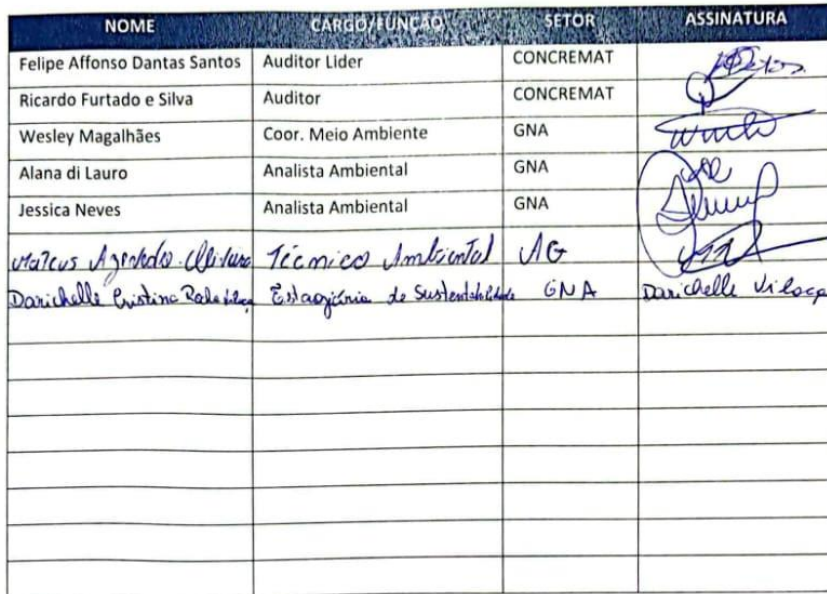 NOME CARGO/FUNÇÃO SETOR ASSINATURA
Felipe Affonso Dantas Santos Auditor Lider CONCREMAT
Ricardo Furtado e Silva Auditor CONCREMAT
Wesley Magalhães Coor. Meio Ambiente GNA
Alana di Lauro Analista Ambiental GNA
Jessica Neves Analista Ambiental GNA
Mateus Técnico Ambiental AG
Darichelle Cristina Estagiária de Sustentabilidade GNA Darichelle Vilaça